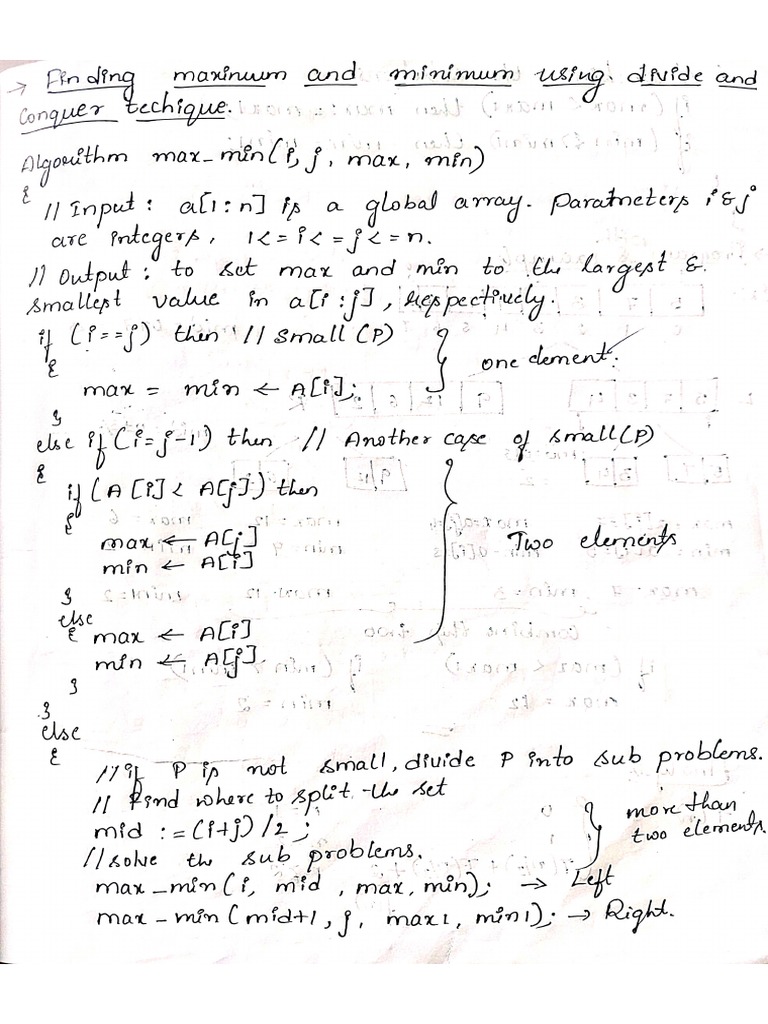 → Finding maxinuum and minimum using divide and
Conquer techique.
Algorithm max_min(i, j, max, min)
{
// Input: a[1:n] is a global array. Parameters i & j
are integers, 1<=i<=j<=n.
// Output: to set max and min to the largest &
smallest value in a[i:j], respectively.
if (i==j) then // Small (P)
{
max = min ← A[i];
one element.
}
else if (i=j-1) then // Another case of small(P)
{
if (A[i] < A[j]) then
{
max ← A[j]
min ← A[i]
Two elements
}
else
{ max ← A[i]
min ← A[j]
}
}
else
{
// if P is not small, divide P into sub problems.
// Find where to split the set
mid := (i+j)/2;
more than
two elements.
// solve the sub problems.
max_min(i, mid, max, min); → Left
max-min(mid+1, j, max1, min1); → Right.